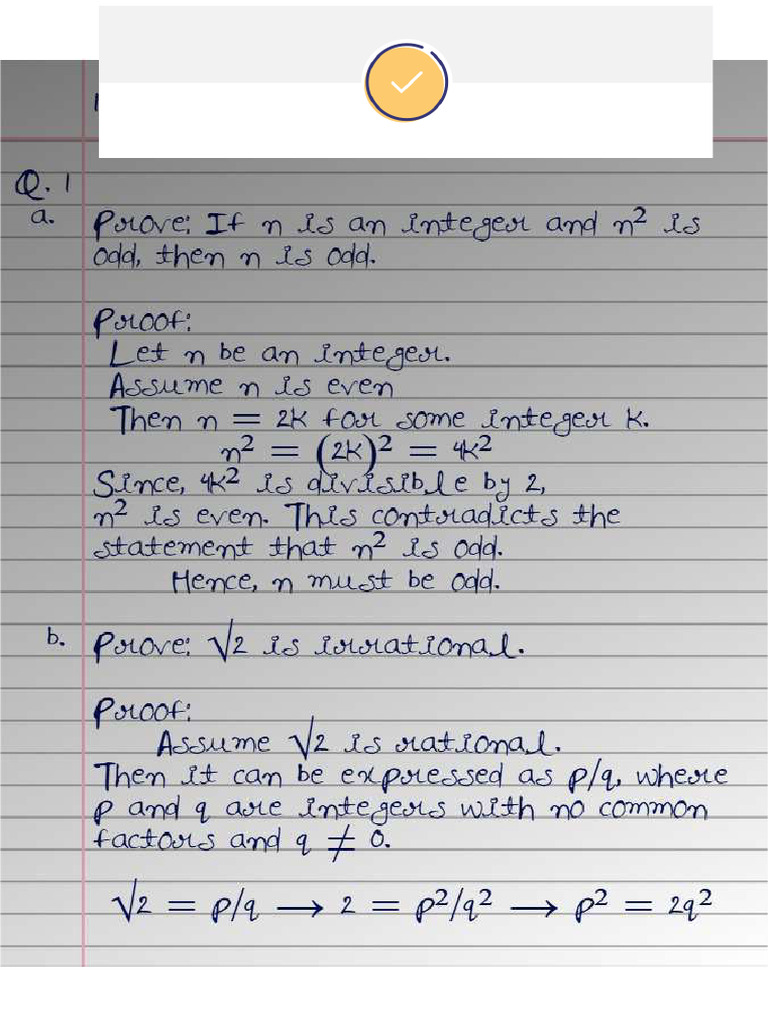 Q. 1
a. Prove: If n is an integer and n² is
odd, then n is odd.
Proof:
Let n be an integer.
Assume n is even
Then n = 2k for some integer k.
n² = (2k)² = 4k²
Since, 4k² is divisible by 2,
n² is even. This contradicts the
statement that n² is odd.
Hence, n must be odd.
b. Prove: √2 is irrational.
Proof:
Assume √2 is rational.
Then it can be expressed as p/q, where
p and q are integers with no common
factors and q ≠ 0.
√2 = p/q → 2 = p²/q² → p² = 2q²